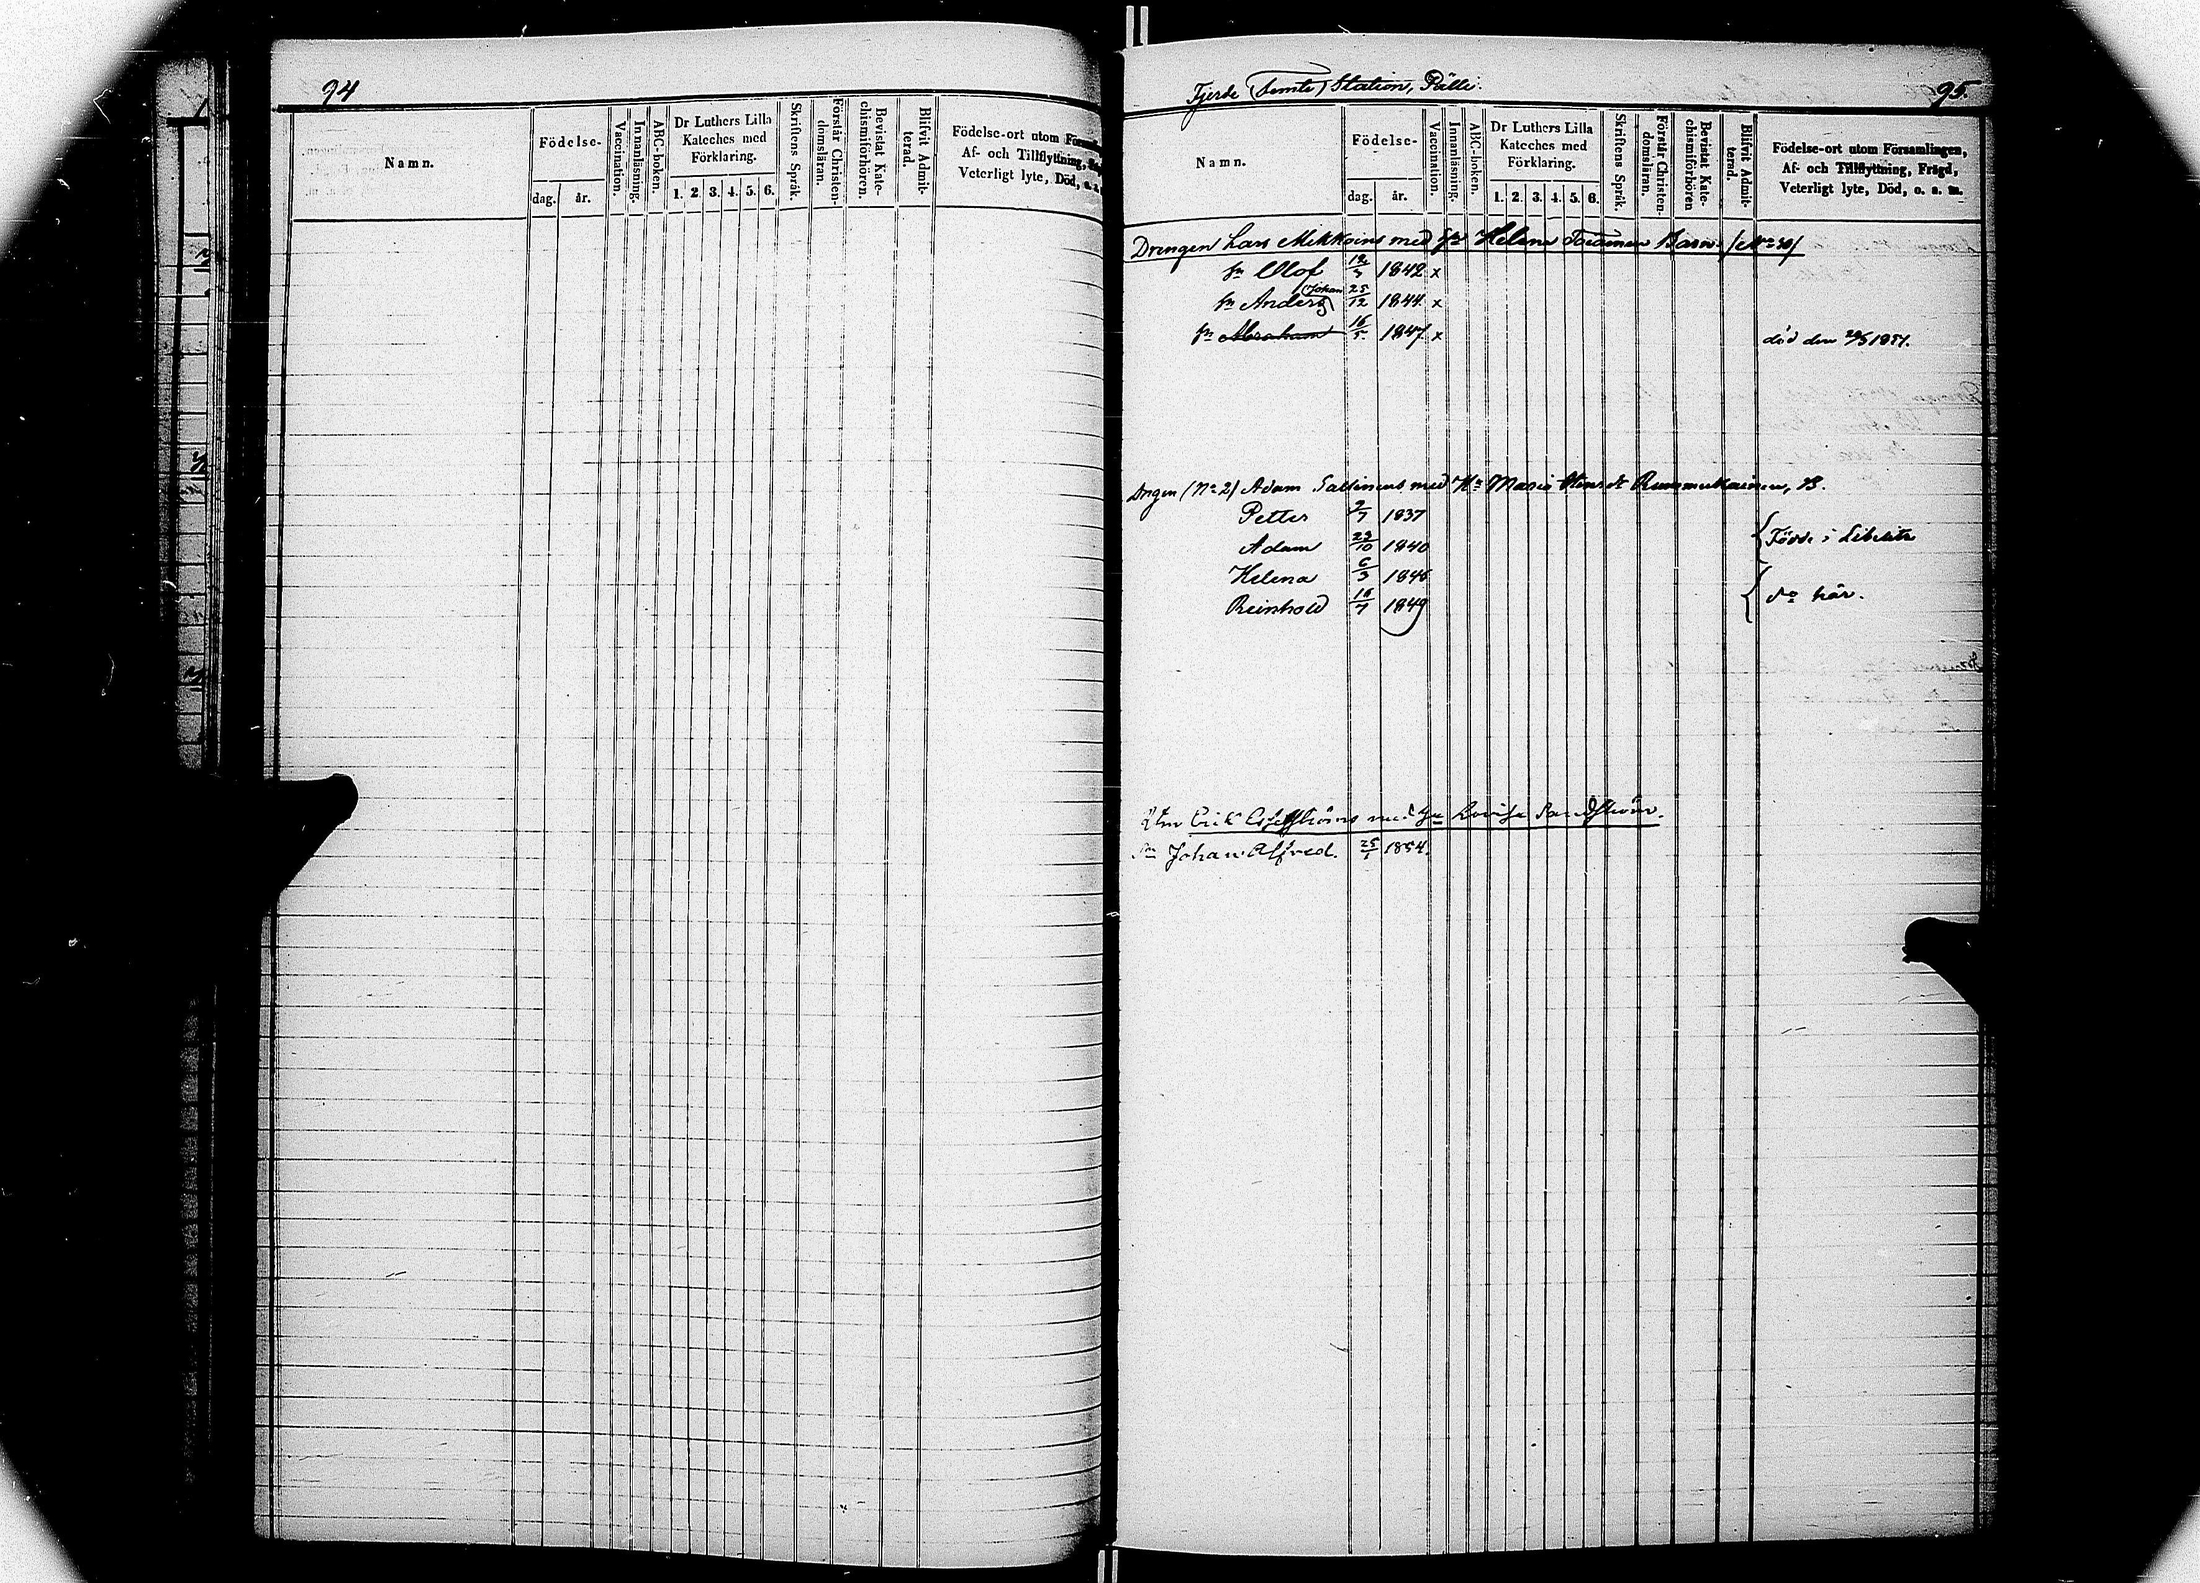 94
Namn.
Födelse-
dag. år.
Vaccination.
Innanläsning.
ABC-boken.
Dr Luthers Lilla
Kateches med
Förklaring.
1. 2. 3. 4. 5. 6.
Skriftens Språk.
Förstår Christen-
domsläran.
Bevistat Kate-
chismiförhören.
Blifvit Admit-
terad.
Födelse-ort utom
Af- och Tillflyttning,
Veterligt lyte, Död,
Fjerde (Femte) Station, Pälle.
95.
Namn.
Födelse-
dag. år.
Vaccination.
Innanläsning.
ABC-boken.
Dr Luthers Lilla
Kateches med
Förklaring.
1. 2. 3. 4. 5. 6.
Skriftens Språk.
Förstår Christen-
domsläran.
Bevistat Kate-
chismiförhören
Blifvit Admit-
terad.
Födelse-ort utom Församlingen,
Af- och Tillflyttning, Frägd,
Veterligt lyte, Död, o. s. m.
Drengen Lars Mikkoins med Helena Barn (No 30)
Olof 1842 x
Anders (Johan) 25/12 1844 x
Abraham 16/5 1847 x död den
Drgen (No 2) Adam med Maria B.
Petter 9/7 1837
Adam 29/10 1840 Födde i Libelits
Helena 6/3 1846
Reinhold 16/7 1849 do här.
Erik med Lovisa
Johan Alfred. 25/1 1854.